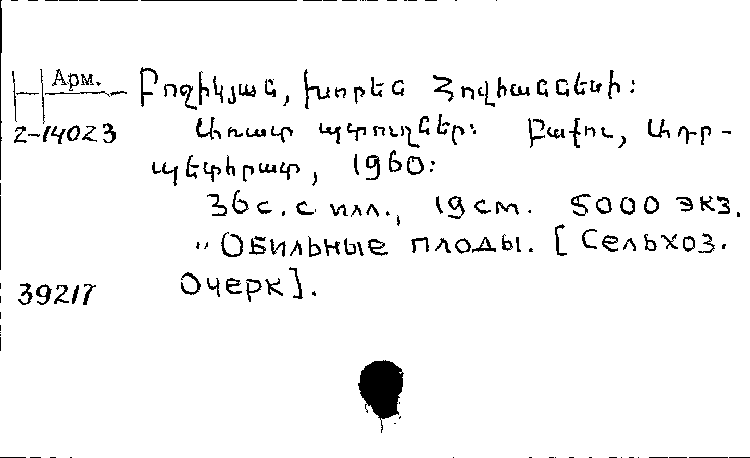 Арм.
Բոզիկյան, Խորեն Հովհաննեսի:
2-14023
Առատ պտուղներ: Բաքու, Ադր-
պետհրատ, 1960:
36 с. с илл., 19 см. 5000 экз.
„Обильные плоды. [Сельхоз.
Очерк].
39217